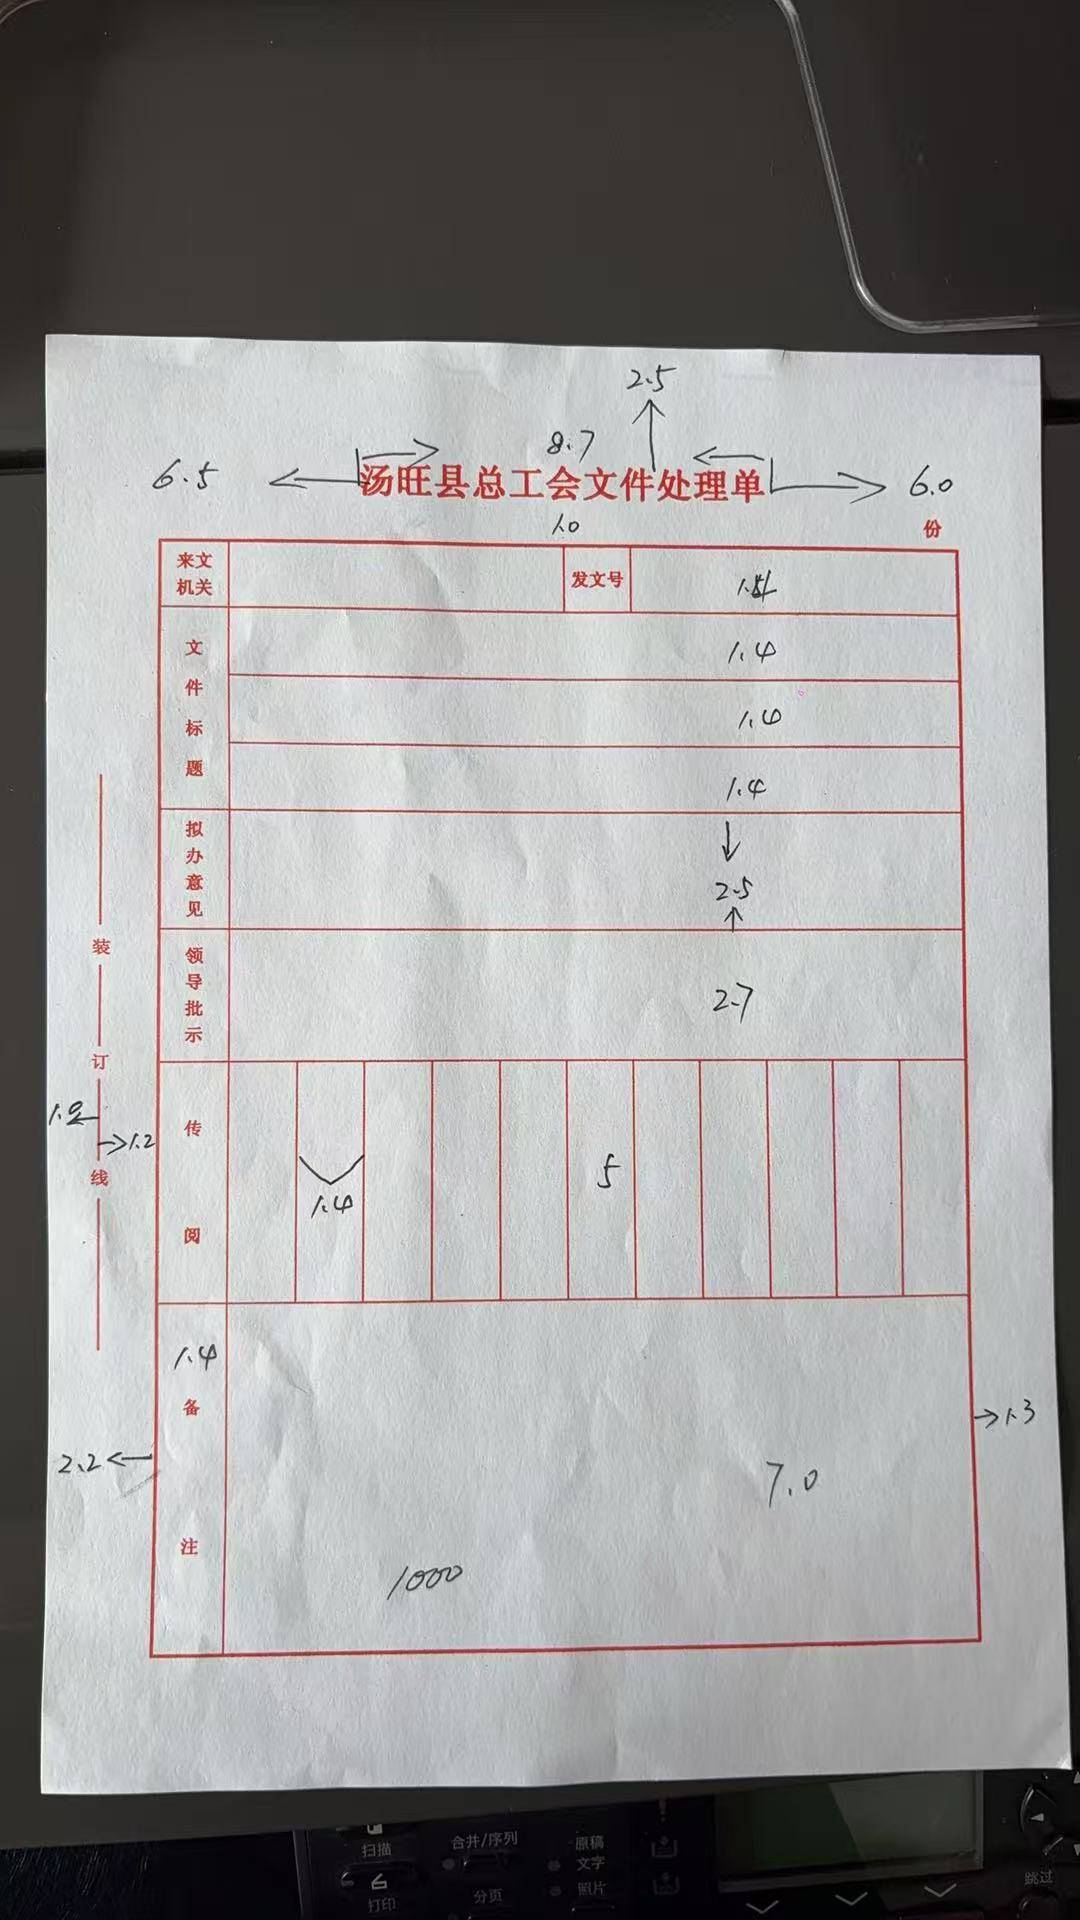 2.5
8.7
6.5
汤旺县总工会文件处理单
6.0
1.0
份
来文
机关
发文号
文
件
标
题
1.4
1.4
1.4
拟
办
意
见
2.5
领
导
批
示
2.7
装
订
线
1.2
传
阅
1.4
5
1.4
备
注
2.2
1.3
7.0
1000
扫描
合并/序列
原稿
文字
照片
打印
分页
跳过